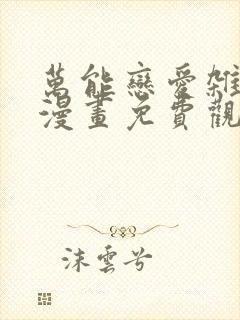 萬能戀愛雜
漫畫免費觀
沫雲兮